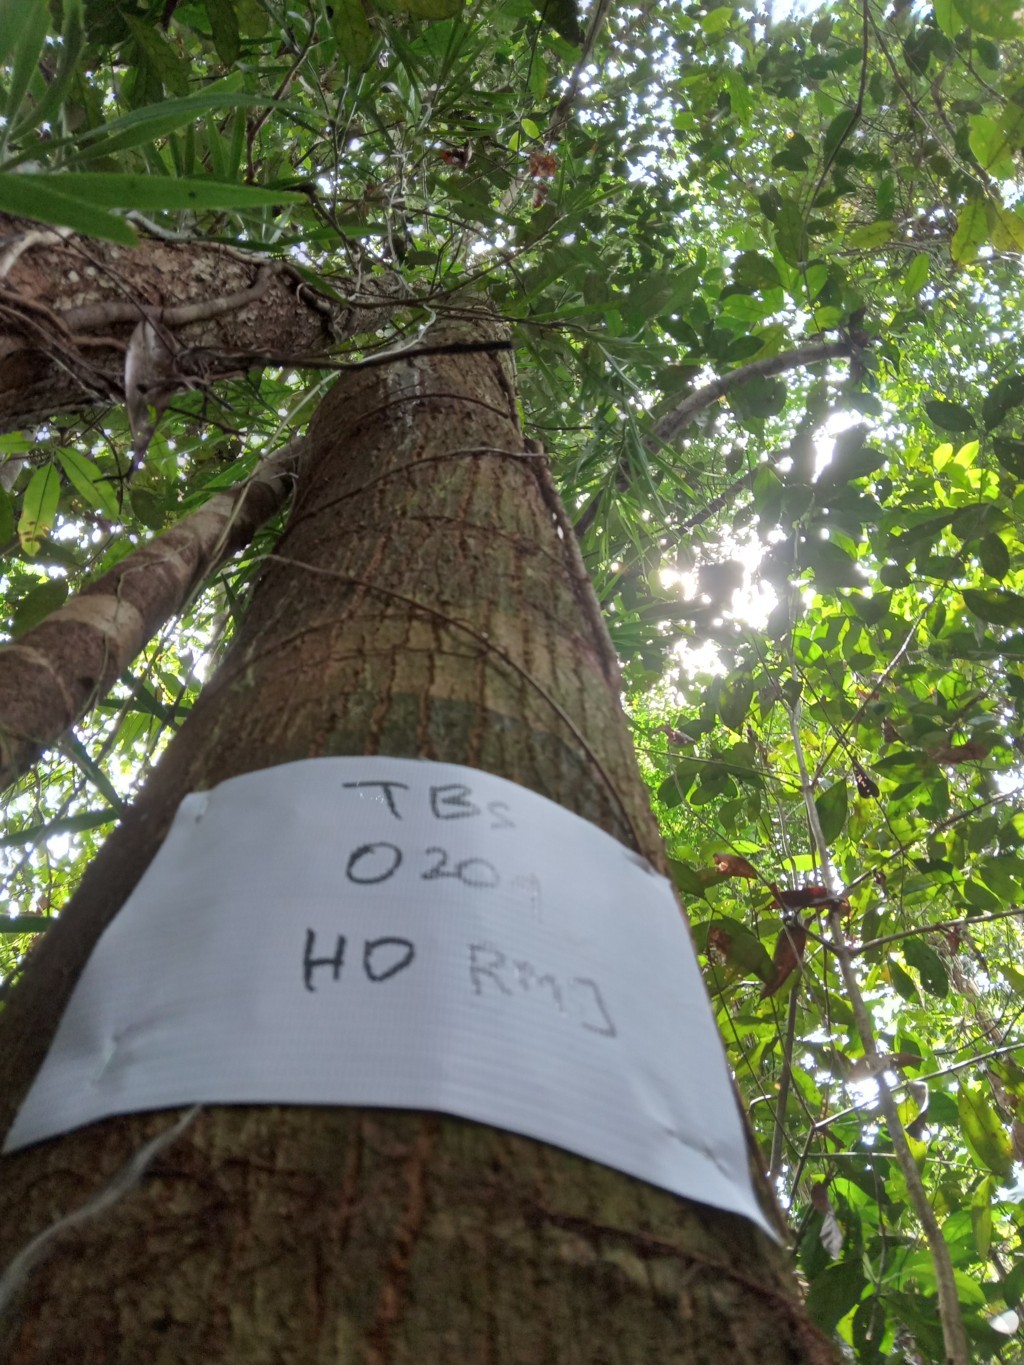 TBS
020
HD RMJ